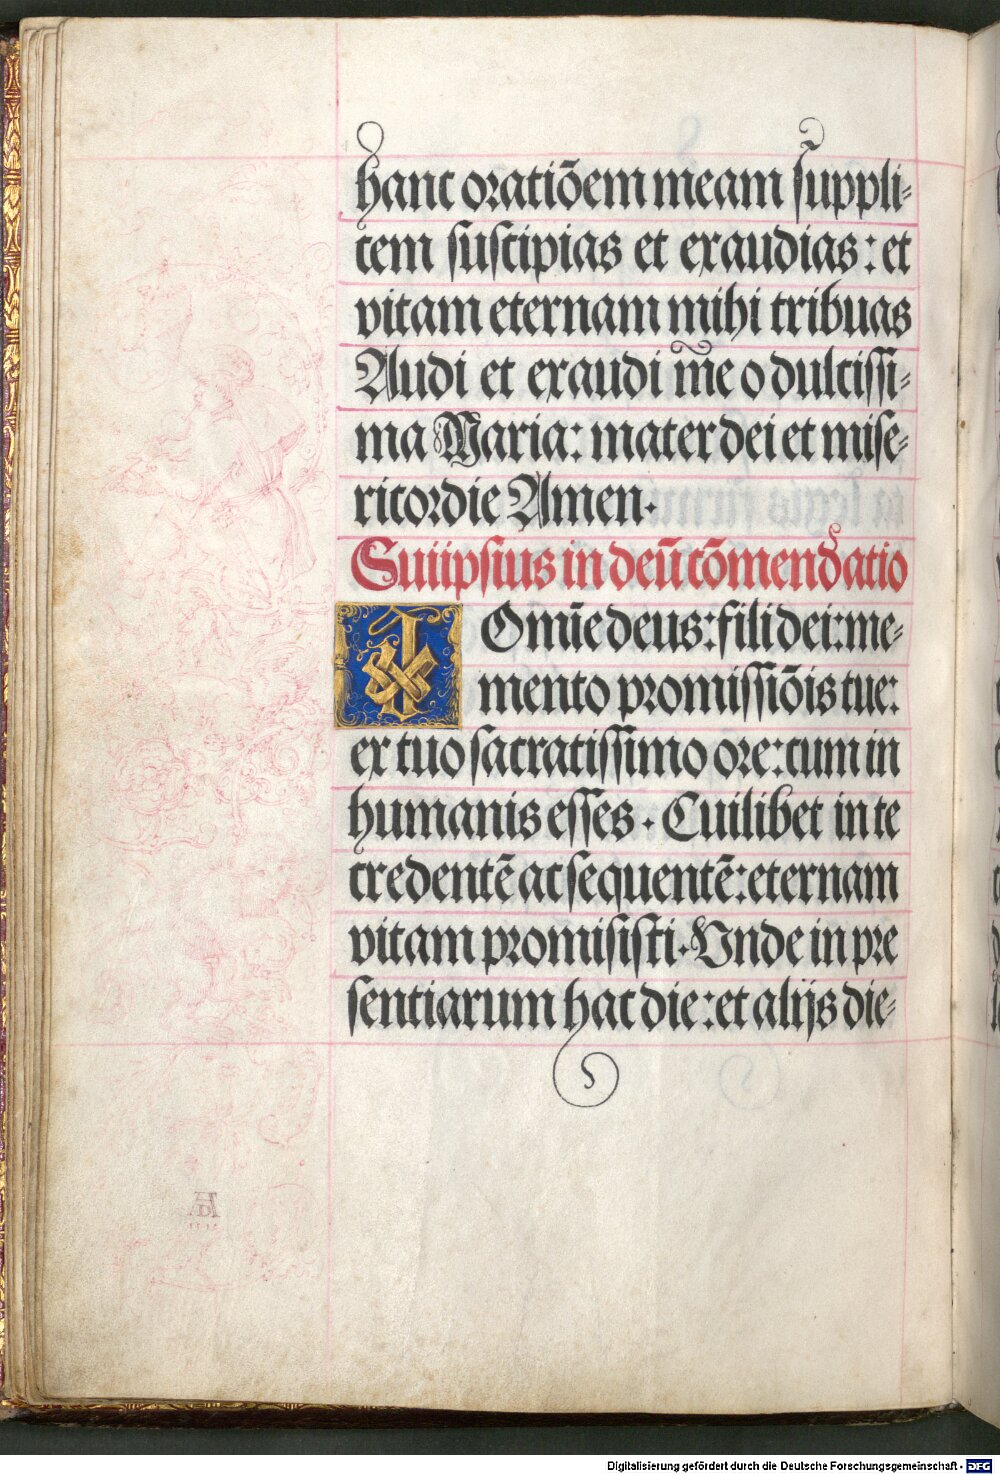 hanc oratiōem meam suppli-
cem suscipias et exaudias: et
vitam eternam mihi tribuas
Audi et exaudi me o dulcissi-
ma Maria: mater dei et mise-
ricordie Amen.
Suiipsius in deū cōmendatio
Omīe deus: fili dei: me-
mento promissiōis tue:
ex tuo sacratissimo ore: cum in
humanis esses. Cuilibet in te
credentē ac sequentē: eternam
vitam promisisti. Vnde in pre
sentiarum hac die: et alijs die-
Digitalisierung gefördert durch die Deutsche Forschungsgemeinschaft - DFG